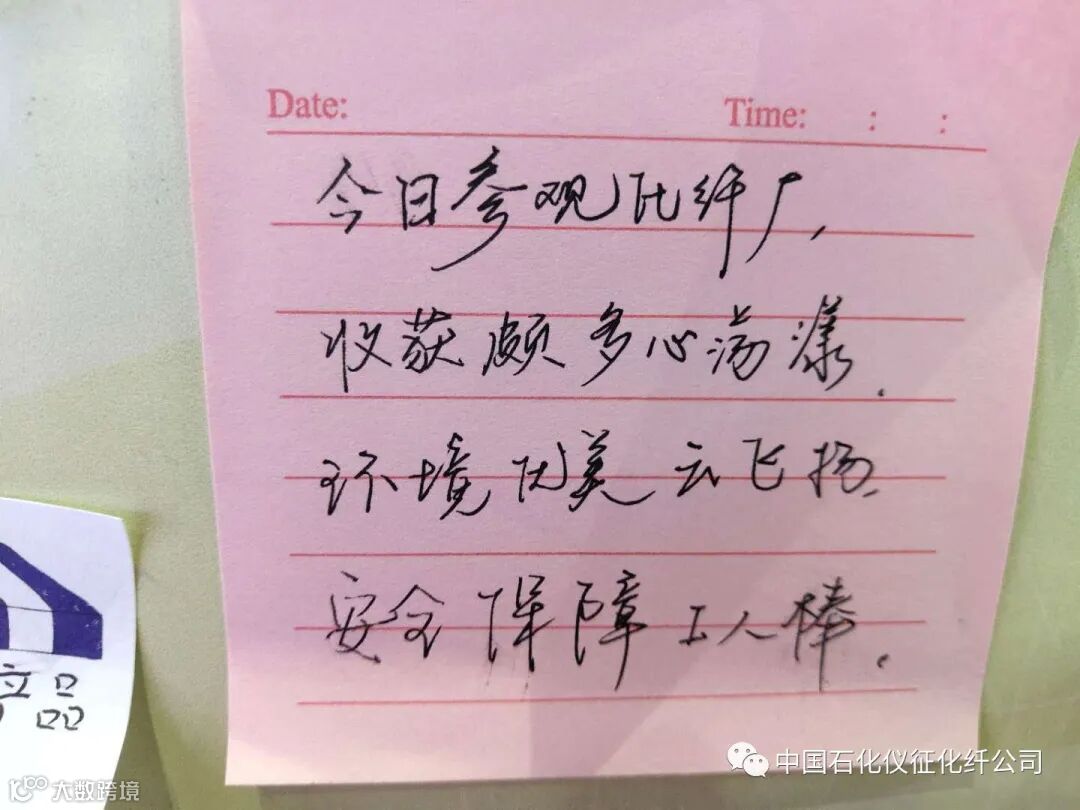 Date:
Time: : :
今日参观化纤厂,
收获颇多心荡漾.
环境优美云飞扬.
安全保障工人棒.
产品
中国石化仪征化纤公司
大数跨境